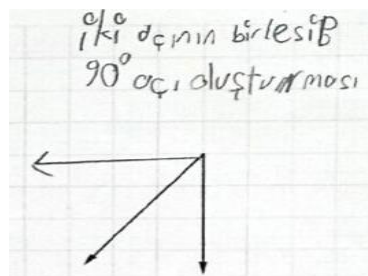 iki açının birleşip
90° açı oluşturması